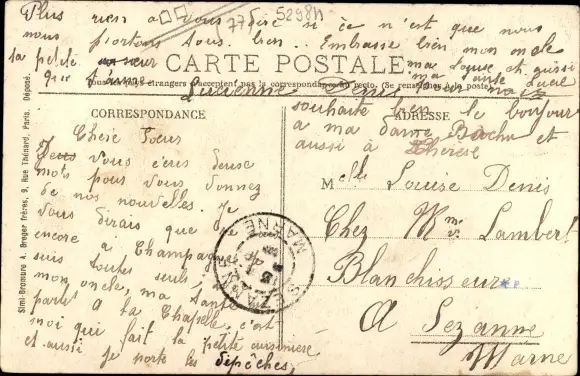 Plus rien a vous dire si ce n'est que nous
nous portons tous bien.. Embrasse bien mon oncle
ta petite soeur
ma tante et aussi
qui t'aime
Lucienne Denis
CARTE POSTALE
Tous les pays étrangers n'acceptent pas la correspondance au recto. (Se renseigner à la poste)
souhaite bien le bonjour
a ma dame et
aussi à Thérèse
CORRESPONDANCE
ADRESSE
Chère Soeur
Je vous écris deux
mots pour vous donnez
de nos nouvelles. Je
vous dirais que je
encore à Champagne
suis toutes seuls,
mon oncle, ma tante
parte a la Chapelle, c'est
moi qui fait la petite cuisinière
et aussi je porte les dépêches,
Melle Louise Denis
Chez Mme Lambert
Blanchisseuse
A Sezanne
Marne
SEZANNE
MARNE
15
Simi-Bromure A. Breger Frères, 9, Rue Thénard, Paris. Déposé.
5298N